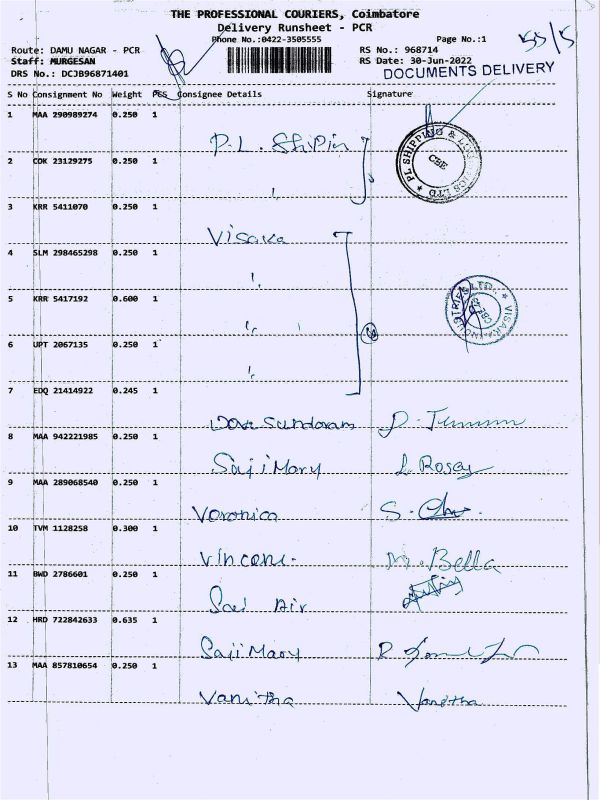 THE PROFESSIONAL COURIERS, Coimbatore
Delivery Runsheet - PCR
Phone No.:0422-3505555
Page No.:1
55/5
Route: DAMU NAGAR - PCR
RS No.: 968714
Staff: MURGESAN
RS Date: 30-Jun-2022
DRS No.: DCJB96871401
DOCUMENTS DELIVERY
S No Consignment No Weight PCS Consignee Details Signature
1 MAA 290989274 0.250 1
P.L. Shipin
PL SHIPPING & LTD CBE
2 COK 23129275 0.250 1
3 KRR 5411070 0.250 1
Visaka
4 SLM 298465298 0.250 1
5 KRR 5417192 0.600 1
VISAKA INDUSTRIES LTD.
6 UPT 2067135 0.250 1
7 EDQ 21414922 0.245 1
Sundaram
8 MAA 942221985 0.250 1
Saji Mary L. Rosey
9 MAA 289068540 0.250 1
Voronica S.
10 TVM 1128258 0.300 1
Vincent. M. Bella
11 BWD 2786601 0.250 1
Sai Air
12 HRD 722842633 0.635 1
Saji Mary R
13 MAA 857810654 0.250 1
Vanitha Vanitha